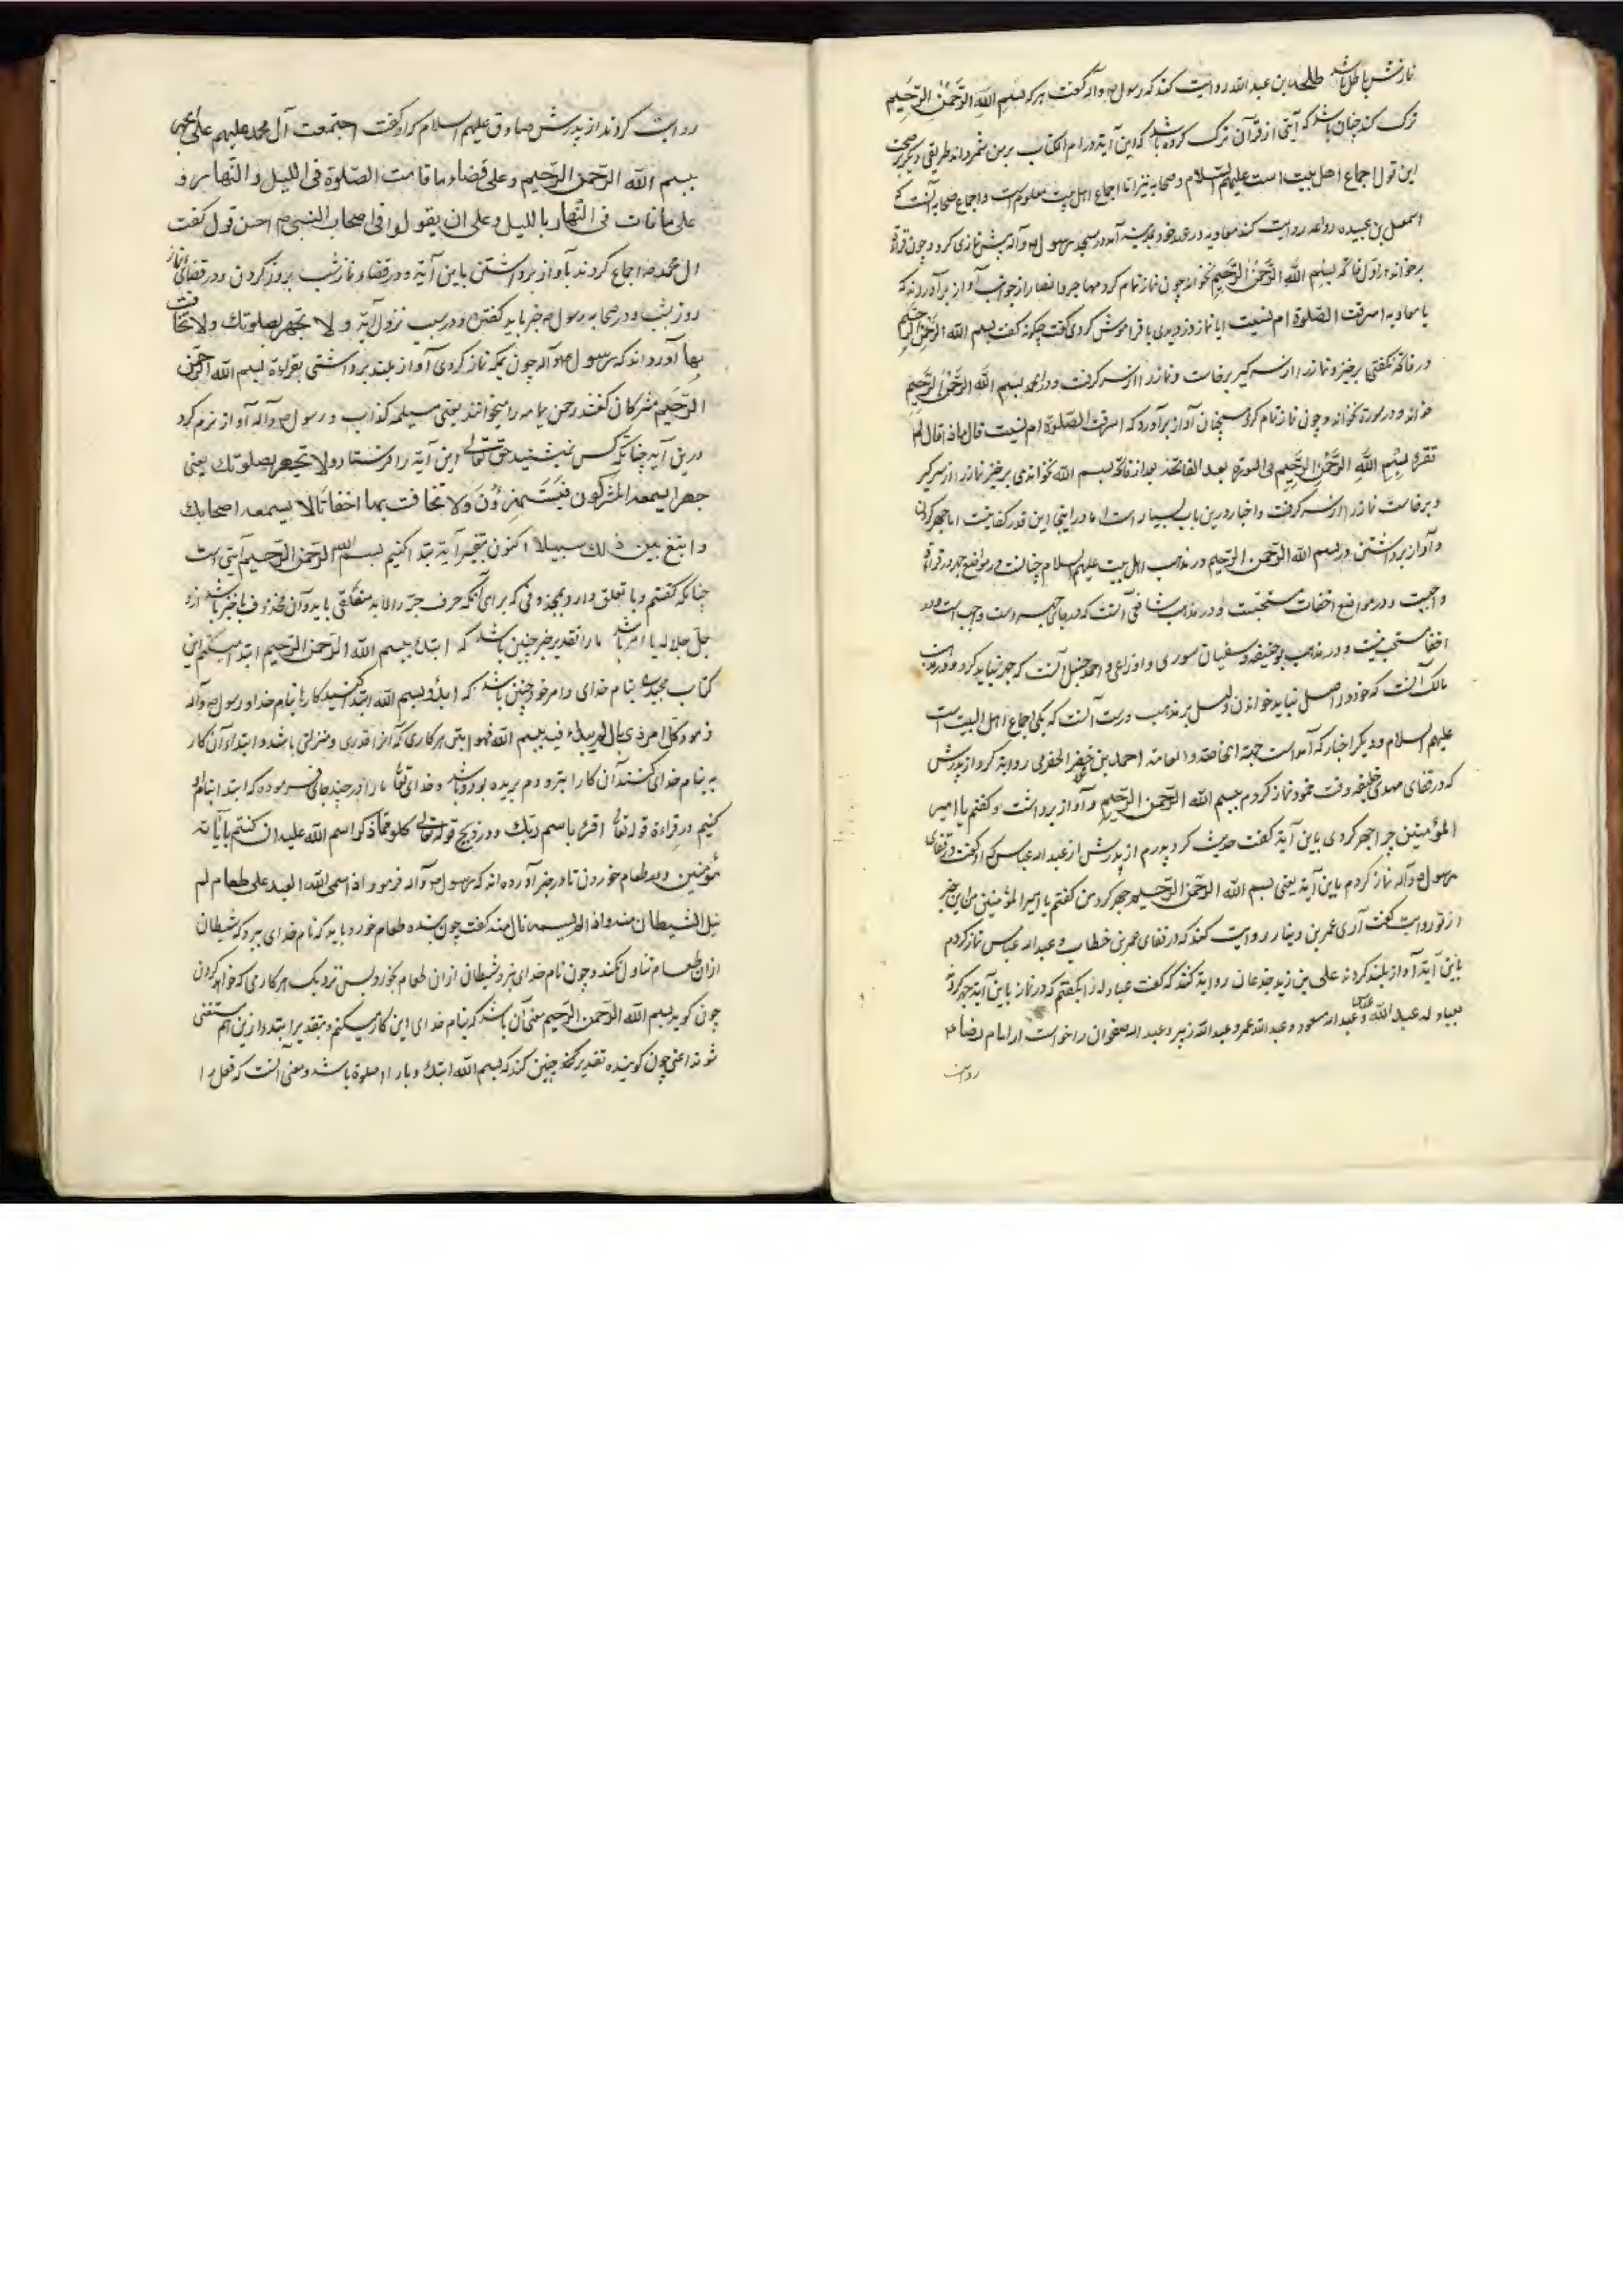 نمازش باطل باشد طلحه بن عبد الله روایت کند که رسول ص و آله گفت هر که بسم الله الرحمن الرحیم
ترک کند چنان باشد که آیتی از قرآن ترک کرده باشد که این آیة در ام الکتاب بر من شمرده اند طریقی دیگر بر صحت
این قول اجماع اهل بیت است علیهم السلام و صحابه نیز اما اجماع اهل بیت معلوم است و اجماع صحابه آنست که
اسمعیل بن عبیده رواعه روایت کند معاویه در عهد خود بمدینه آمد در مسجد رسول ص و آله پیش نمازی کرد و چون قراة
بر خواند در اول فاتحه بسم الله الرحمن الرحیم نخواند چون نماز تمام کرد مهاجر و انصار از جوانب آواز برآوردند که
یا معاویه اسرقت الصلوة ام نسیت ایا نماز دزدیدی یا فراموش کردی گفت چگونه گفت بسم الله الرحمن الرحیم
در فاتحه نگفتی برخیز و نماز را از سر گیر برخاست و نماز را از سر گرفت و در الحمد بسم الله الرحمن الرحیم
خواند و در سورة نخواند و چون نماز تمام کرد همچنان آواز برآوردند که اسرقت الصلوة ام نسیت قال ماذا قال لم
تقره بسم الله الرحمن الرحیم فی السورة بعد الفاتحة بعد از فاتحه بسم الله نخواندی برخیز نماز را از سر گیر
و برخاست نماز را از سر گرفت و اخبار درین باب بسیار است اما در اینجا این قدر کفایتست اما جهر کردن
و آواز برداشتن در بسم الله الرحمن الرحیم در مذهب اهل بیت علیهم السلام چنانست در مواضع جهر در قراءة
واجبت و در مواضع اخفات مستحبست و در مذهب شافعی آنست که در جای جهر است واجب است و در
اخفا مستحب نیست و در مذهب بوحنیفه و سفیان سوری و اوزاعی و احمد حنبل آنست که جهر نباید کرد و در مذهب
مالک آنست که خود در اصل نباید خواندن و لیل بر مذهب درست آنست که یکی اجماع اهل البیت است
علیهم السلام و دیگر اخبار که آمده است جهة الخاصه و العامة احمد بن خضر الحضرمی روایة کرد از پدرش
که در قفای مهدی خلیفه وقت خود نماز کردم بسم الله الرحمن الرحیم و آواز برداشت و گفتم یا امیر
المؤمنین چرا جهر کردی باین آیة گفت حدیث کرد پدرم از پدرش از عبد الله عباس که او گفت در قفای
رسول ص و آله نماز کردم باین آیة یعنی بسم الله الرحمن الرحیم جهر کرد من گفتم یا امیر المؤمنین من این خبر
از تو روایت گفت آری عمر بن دینار روایت کند که در قفای عمر بن خطاب و عبد الله عباس نماز کردم
باین آیة آواز بلند کردند علی بن زید جدعان روایة کند که گفت عبادله را بگفتم که در نماز باین آیة جهر کردند
بعبادله عبد الله عباس و عبد الله مسعود و عبد الله عمر و عبد الله زبیر و عبد الله صفوان را خواست از امام رضا ع
روایت
روایت کردند از پدرش صادق علیهم السلام که او گفت اجتمعت آل محمد علیهم علی الجهر
بسم الله الرحمن الرحیم و علی قضاء ما فاتت الصلوة فی اللیل و النهار و
علی ما فات فی النهار باللیل و علی ان یقولوا فی اصحاب النبی ص احسن قول گفت
ال محمد ص اجماع کردند بآواز برداشتن باین آیة و در قضاء نماز شب بروز کردن و در قضای نماز
روز بشب و در صحابه رسول ص خیر باید گفتن و در سبب نزول آیة و لا تجهر بصلوتک و لا تخافت
بها آورده اند که رسول ص و آله چون بمکه نماز کردی آواز بلند برداشتی بقراءة بسم الله الرحمن
الرحیم مشرکان گفتند رحمن یمامه را میخوانند یعنی مسیلمه کذاب و رسول ص و آله آواز نرم کرد
درین آیه چنانکه کس نمیشنید حق تعالی این آیة را فرستاد و لا تجهر بصلوتک یعنی
جهرا یسمعه المشرکون فیستهزؤن و لا تخافت بها اخفاتا لا یسمعه اصحابک
و ابتغ بین ذلک سبیلا اکنون بتفسیر آیة ابتدا کنیم بسم الله الرحمن الرحیم آیتی است
چنانکه گفتیم و با تعلق دارد بمحذوفی که برای آنکه حرف جر را لابد متعلقی باید و آن محذوف یا خبر باشد ازو
جل جلاله یا امر باشد ما را تقدیر خبر چنین باشد که ابتدئ بسم الله الرحمن الرحیم ابتدا میکنم این
کتاب مجید بنام خدای و امر خود چنین باشد که ابدؤ بسم الله ابتدا کنید کارها بنام خدا و رسول ص و آله
فرمود کل امر ذی بال لم یبدء فیه ببسم الله فهو ابتر هر کاری که آنرا قدری و منزلتی باشد و ابتداء آن کار
نه بنام خدای کنند آن کار ابتر و دم بریده بود و باشد و خدای تعالی ما را در چند جای فرموده که ابتدا بنام او
کنیم در قراءة قوله تعالی اقرء باسم ربک و در ذبح قوله تعالی کلوا مما ذکر اسم الله علیه ان کنتم بآیاته
مؤمنین و بر طعام خوردن تا در خبر آورده اند که رسول ص و آله فرمود اذا سمی الله العبد علی طعام لم
ینل الشیطان منه و اذا لم یسمه نال منه گفت چون بنده طعام خورد باید که نام خدای ببرد که شیطان
ازان طعام تناول نکند و چون نام خدای نبرد شیطان ازان طعام بخورد پس نزدیک هر کاری که خواهد کردن
چون گوید بسم الله الرحمن الرحیم معنی آن باشد که بنام خدای این کار میکنم و بتقدیر ابتدا و ازین هم مستغنی
شوند اعنی چون گوینده تقدیر چنین کند که بسم الله ابتدئ و با را صلوة باشد و معنی آنست که فعل را